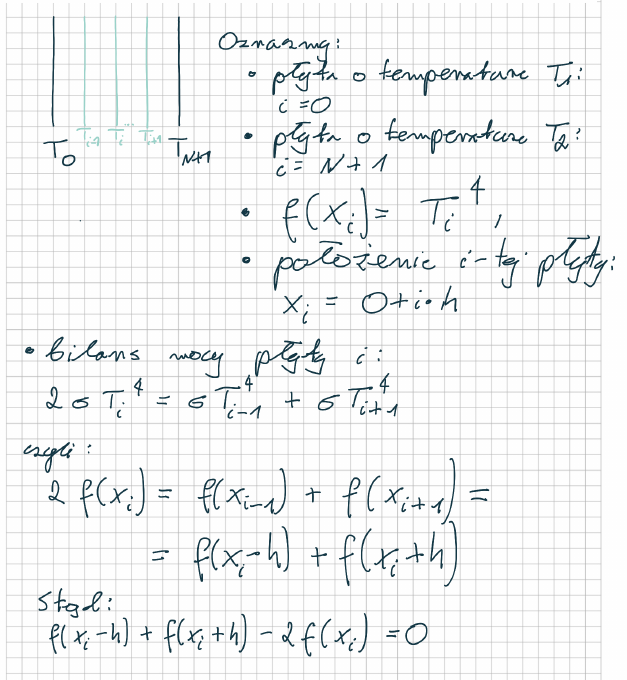 Oznaczmy:
• płyta o temperaturze T₁:
i = 0
• płyta o temperaturze T₂:
i = N + 1
T₀ Tᵢ₋₁ Tᵢ ... Tᵢ₊₁ T_N+1
• f(xᵢ) = Tᵢ⁴,
• położenie i-tej płyty:
xᵢ = 0 + i · h
• bilans mocy płyty i:
2 σ Tᵢ⁴ = σ Tᵢ₋₁⁴ + σ Tᵢ₊₁⁴
czyli:
2 f(xᵢ) = f(xᵢ₋₁) + f(xᵢ₊₁) =
= f(xᵢ-h) + f(xᵢ+h)
Stąd:
f(xᵢ-h) + f(xᵢ+h) - 2f(xᵢ) = 0